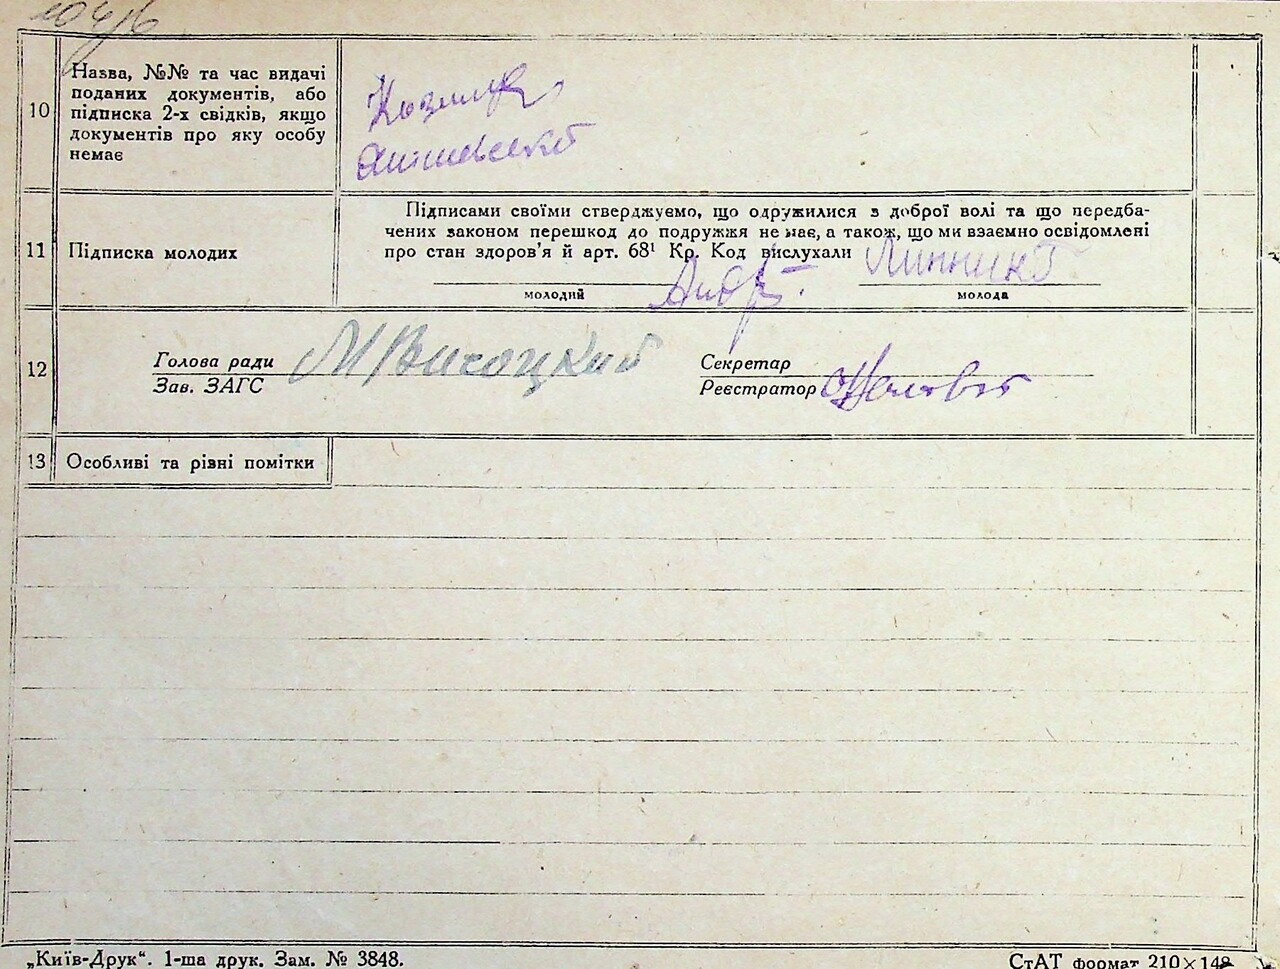 10
Назва, №№ та час видачі
поданих документів, або
підписка 2-х свідків, якщо
документів про яку особу
немає
11
Підписка молодих
Підписами своїми стверджуємо, що одружилися з доброї волі та що передба-
чених законом перешкод до подружжя не має, а також, що ми взаємно освідомлені
про стан здоров'я й арт. 68¹ Кр. Код вислухали
молодий
молода
12
Голова ради
Зав. ЗАГС
МВисоцкий
Секретар
Реєстратор
13
Особливі та різні помітки
„Київ-Друк“. 1-ша друк. Зам. № 3848.
СтАТ формат 210×148